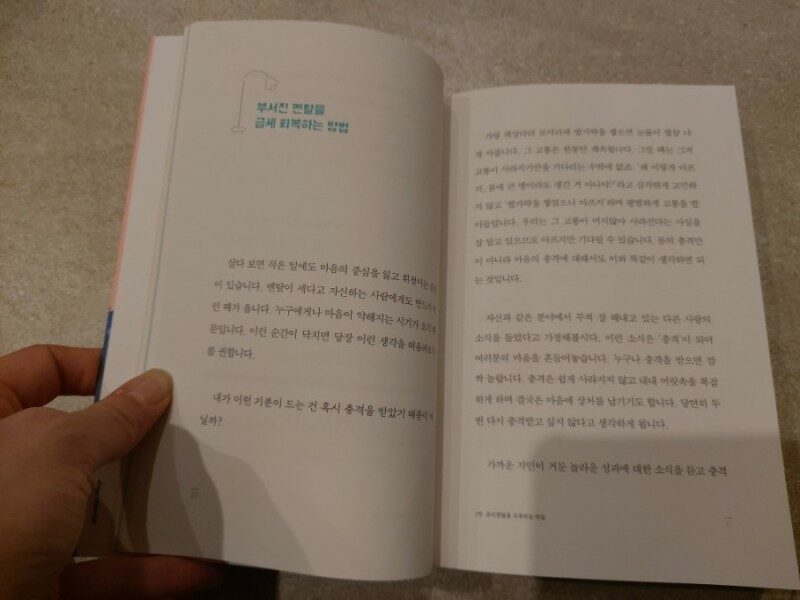 부서진 멘탈을
금세 회복하는 방법
살다 보면 작은 일에도 마음의 중심을 잃고 휘청이는 순간
이 있습니다. 멘탈이 세다고 자신하는 사람에게도 반드시
런 때가 옵니다. 누구에게나 마음이 약해지는 시기가 오기
문입니다. 이런 순간이 닥치면 당장 이런 생각을 떠올려보기
를 권합니다.
내가 이런 기분이 드는 건 혹시 충격을 받았기 때문이
닐까?
가령 책상다리 모서리에 발가락을 찧으면 눈물이 찔끔 나
게 아픕니다. 그 고통은 한동안 계속됩니다. 그럴 때는 그저
고통이 사라지기만을 기다리는 수밖에 없죠. '왜 이렇게 아프
지. 몸에 큰 병이라도 생긴 거 아니야?'라고 심각하게 고민하
지 않고 '발가락을 찧었으니 아프지'라며 평범하게 고통을 받
아들입니다. 우리는 그 고통이 머지않아 사라진다는 사실을
잘 알고 있으므로 아프지만 기다릴 수 있습니다. 몸의 충격만
이 아니라 마음의 충격에 대해서도 이와 똑같이 생각하면 되
는 것입니다.
자신과 같은 분야에서 무척 잘 해내고 있는 다른 사람의
소식을 들었다고 가정해봅시다. 이런 소식은 '충격'이 되어
여러분의 마음을 흔들어놓습니다. 누구나 충격을 받으면 깜
짝 놀랍니다. 충격은 쉽게 사라지지 않고 내내 머릿속을 복잡
하게 하며 결국은 마음에 상처를 남기기도 합니다. 당연히 두
번 다시 충격받고 싶지 않다고 생각하게 됩니다.
가까운 지인이 거둔 놀라운 성과에 대한 소식을 듣고 충격
1장 · 유리멘탈을 극복하는 연습